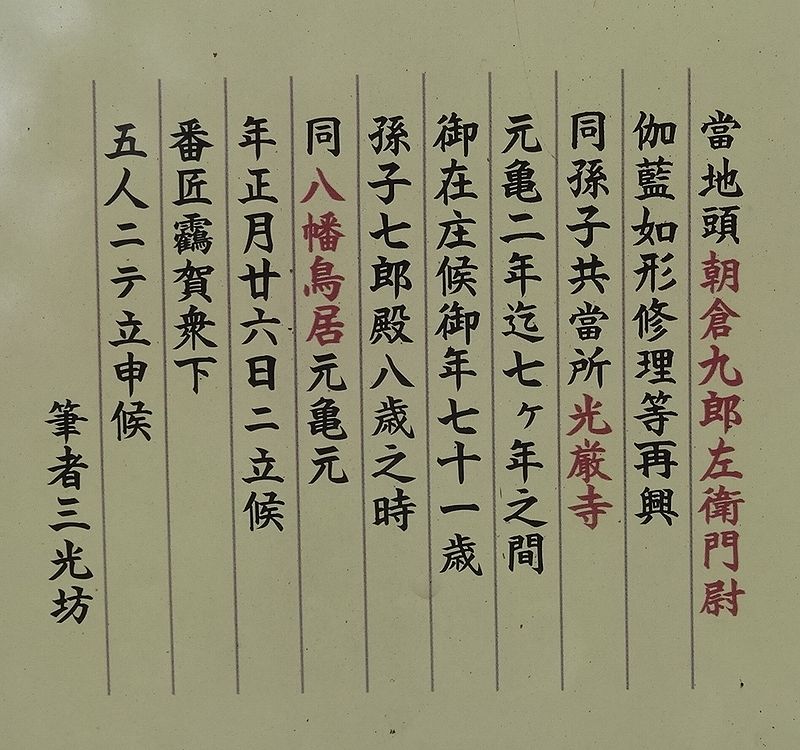 當地頭朝倉九郎左衛門尉
伽藍如形修理等再興
同孫子共當所光厳寺
元亀二年迄七ヶ年之間
御在庄候御年七十一歳
孫子七郎殿八歳之時
同八幡鳥居元亀元
年正月廿六日ニ立候
番匠靏賀衆下
五人ニテ立申候
筆者三光坊